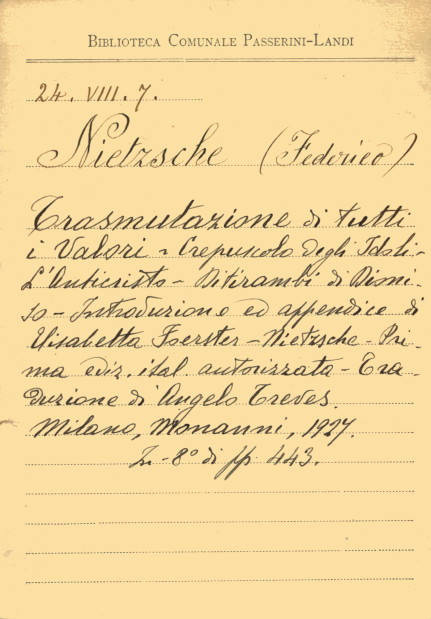 Biblioteca Comunale Passerini-Landi
24. VIII. 7.
Nietzsche (Federico)
Trasmutazione di tutti
i Valori - Crepuscolo degli Idoli -
L'Anticristo - Ditirambi di Dioni-
so - Introduzione ed appendice di
Elisabetta Foerster - Nietzsche - Pri-
ma ediz. ital. autorizzata - Tra-
duzione di Angelo Treves.
Milano, Monanni, 1927.
In - 8° di pp 443.